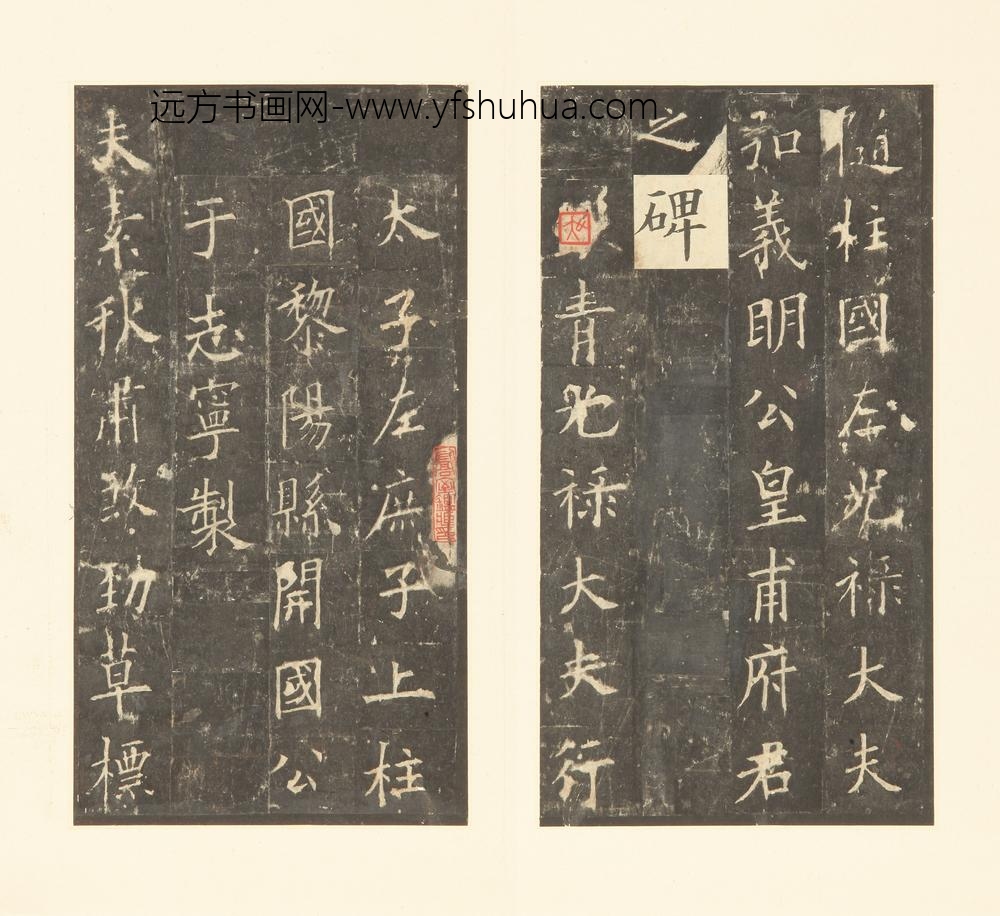 远方书画网-www.yfshuhua.com
隨柱國左光祿大夫
弘義明公皇甫府君
之碑
青光祿大夫行
太子左庶子上柱
國黎陽縣開國公
于志寧製
夫素秋肅煞勁草標